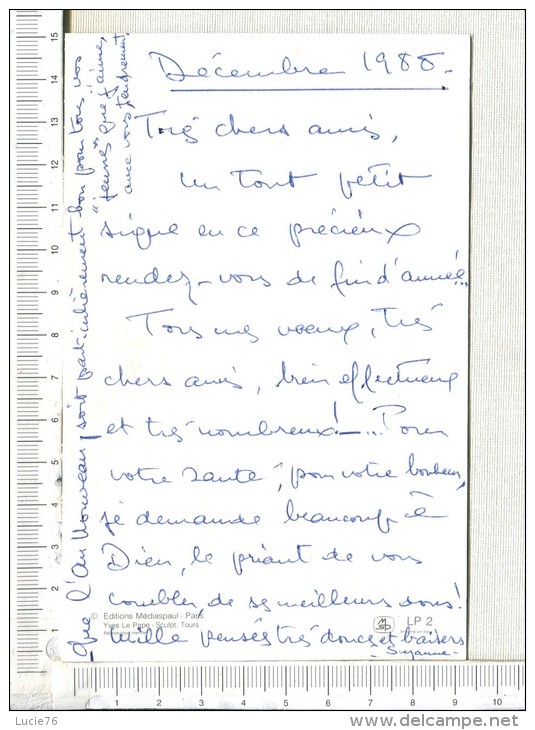 Décembre 1988.
Très chers amis,
Un tout petit
signe en ce précieux
rendez-vous de fin d'année...
Tous mes voeux, très
chers amis, bien affectueux
et très nombreux! ... Pour
votre santé, pour votre bonheur,
je demande beaucoup à
Dieu, le priant de vous
combler de ses meilleurs dons!
Mille pensées très douces et baisers
- Suzanne -
Que l'An Nouveau, soit particulièrement bon pour tous vos
"jeunes" que j'aime,
avec vous, tendrement.
© Editions Médiaspaul - Paris
Yves Le Pape - Sculpt. Tours
MSP
LP 2
15
14
13
12
11
10
9
8
7
6
5
4
3
2
1
1 2 3 4 5 6 7 8 9 10
Lucie76
www.delcampe.net